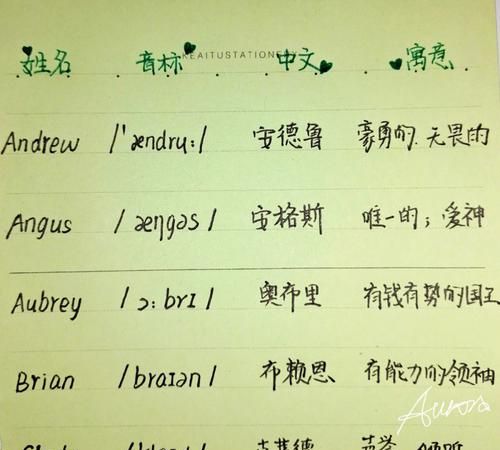 KEAITUSTATIONERY
姓名 音标 中文 寓意
Andrew /'ændru:/ 安德鲁 豪勇的.无畏的
Angus /æŋgəs/ 安格斯 唯一的；爱神
Aubrey /ɔ:brɪ/ 奥布里 有钱有势的国王
Brian /braɪən/ 布赖恩 有能力的领袖
Aurora